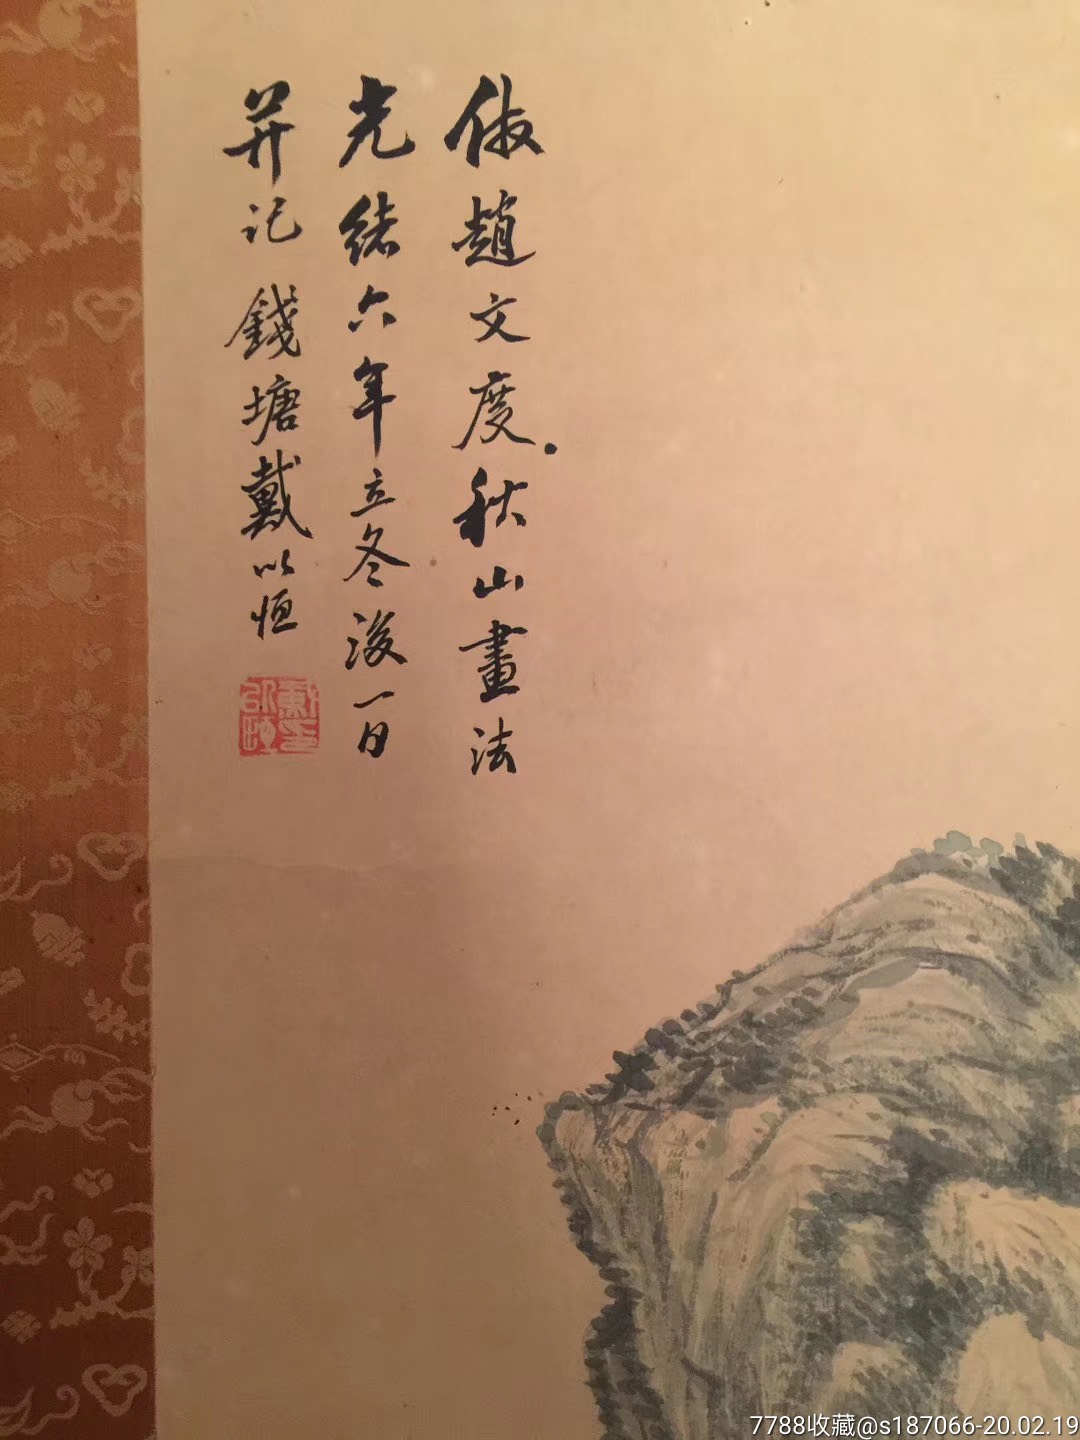 倣趙文度秋山畫法
光緒六年立冬後一日
并記 錢塘戴以恒
7788收藏@s187066-20.02.19